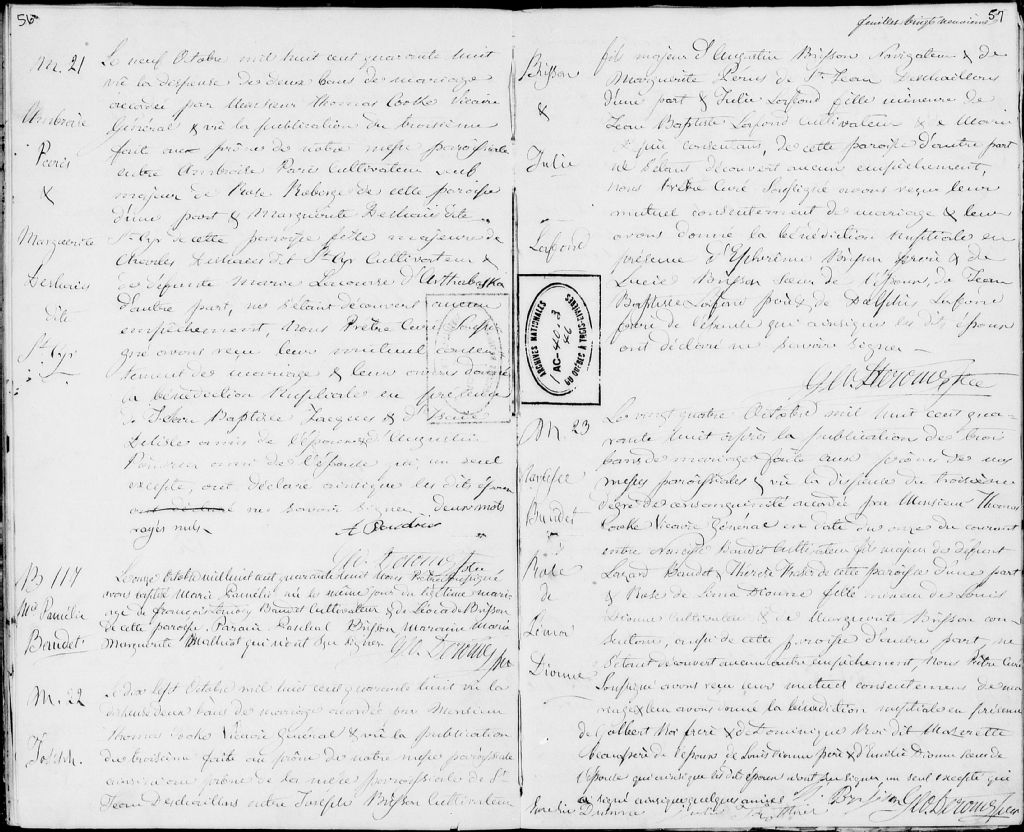 56
M. 21
Ambroise
Paris
&
Marguerite
Desharies
dite
St Cyr
Le neuf Octobre mil huit cent quarante huit
vû la dispense de deux bans de mariage
accordée par Monsieur Thomas Cooke Vicaire
Général & vû la publication du troisième
fait au prône de notre messe paroissiale
entre Ambroise Paris Cultivateur
majeur de Rose Roberge de cette paroisse
d'une part & Marguerite Desharies dite
St Cyr de cette paroisse fille majeure de
Charles Desharies dit St Cyr Cultivateur &
de défunte Marie Lemoine d'Arthabaska
d'autre part, ne s'étant découvert aucun
empêchement, Nous Prêtre Curé Soussi-
gné avons reçu leur mutuel consen-
tement de mariage & leur avons donné
la bénédiction nuptiale en présence
de Jean Baptiste Jacques & d'
Delisle amis de l'époux & d'Augustin
ami de l'épouse qui, un seul
excepté, ont déclaré ainsique les dits époux
ne savoir signer. deux mots
rayés nuls.
Geo. Derome Ptre
B 117
Mie Pamélie
Baudet
Le onze Octobre mil huit cent quarante huit Nous Prêtre soussigné
avons baptisé Marie Pamélie née le même jour du légitime maria-
ge de François Baudet Cultivateur & de Léocade Brisson
de cette paroisse. Parain Paschal Brisson Maraine Marie
Marguerite Mailhiot qui n'ont su signer. Geo. Derome Ptre
M. 22
Joseph
Le dix sept Octobre mil huit cent quarante huit vû la
dispense deux bans de mariage accordée par Monsieur
Thomas Cooke Vicaire Général & vû la publication
du troisième faite au prône de notre messe paroissiale
ainsi qu'au prône de la messe paroissiale de St
Jean Deschaillons entre Joseph Brisson Cultivateur
57
feuillet vingt neuvième
Brisson
&
Julie
Lafond
fils majeur d'Augustin Brisson Navigateur & de
Marguerite Perus de St Jean Deschaillons
d'une part & Julie Lafond fille mineure de
Jean Baptiste Lafond Cultivateur & de Marie
consentans, de cette paroisse d'autre part
ne s'étant découvert aucun empêchement,
Nous Prêtre Curé Soussigné avons reçu leur
mutuel consentement de mariage & leur
avons donné la bénédiction nuptiale en
présence d'Ephrème Brisson frère & de
Lucie Brisson sœur de l'époux, de Jean
Baptiste Lafond père & de Lafond
frère de l'épouse qui ainsique les dits époux
ont déclaré ne savoir signer.
Geo. Derome Ptre
ARCHIVES NATIONALES
AC-46-3
46
DU QUÉBEC À TROIS-RIVIÈRES
M. 23
Narcisse
Baudet
Rose
de
Lima
Dionne
Le vingt quatre Octobre mil huit cent qua-
rante huit après la publication de trois
bans de mariage faite aux prônes de nos
messes paroissiales & vû la dispense du troisième
degré de consanguinité accordée par Monsieur Thomas
Cooke Vicaire Général en date du onze du courant
entre Narcisse Baudet Cultivateur fils majeur de défunt
Lazard Baudet & Therese de cette paroisse d'une part
& Rose de Lima Dionne fille mineure de Louis
Dionne Cultivateur & de Marguerite Brisson con-
sentans, aussi de cette paroisse d'autre part, ne
s'étant découvert aucun autre empêchement, Nous Prêtre Curé
Soussigné avons reçu leur mutuel consentement de ma-
riage & leur avons donné la bénédiction nuptiale en présence
de & de Dominique
beaufrère de l'époux de Louis Dionne père & d'Emilie Dionne sœur de
l'épouse qui ainsique les dits époux n'ont su signer un seul excepté qui
a signé ainsique quelques amis
Brisson Geo. Derome Ptre
Emelie Dionne